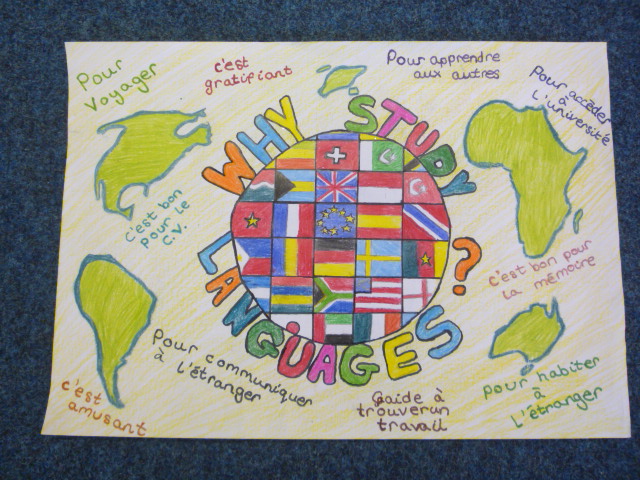 Pour
Voyager
c'est
gratifiant
Pour apprendre
aux autres
Pour accéder
à
l'université
WHY STUDY
LANGUAGES ?
c'est bon
pour le
C.V.
c'est bon pour
la mémoire
Pour communiquer
à l'étranger
c'est
amusant
Çaide à
trouver un
travail
Pour habiter
à
l'étranger